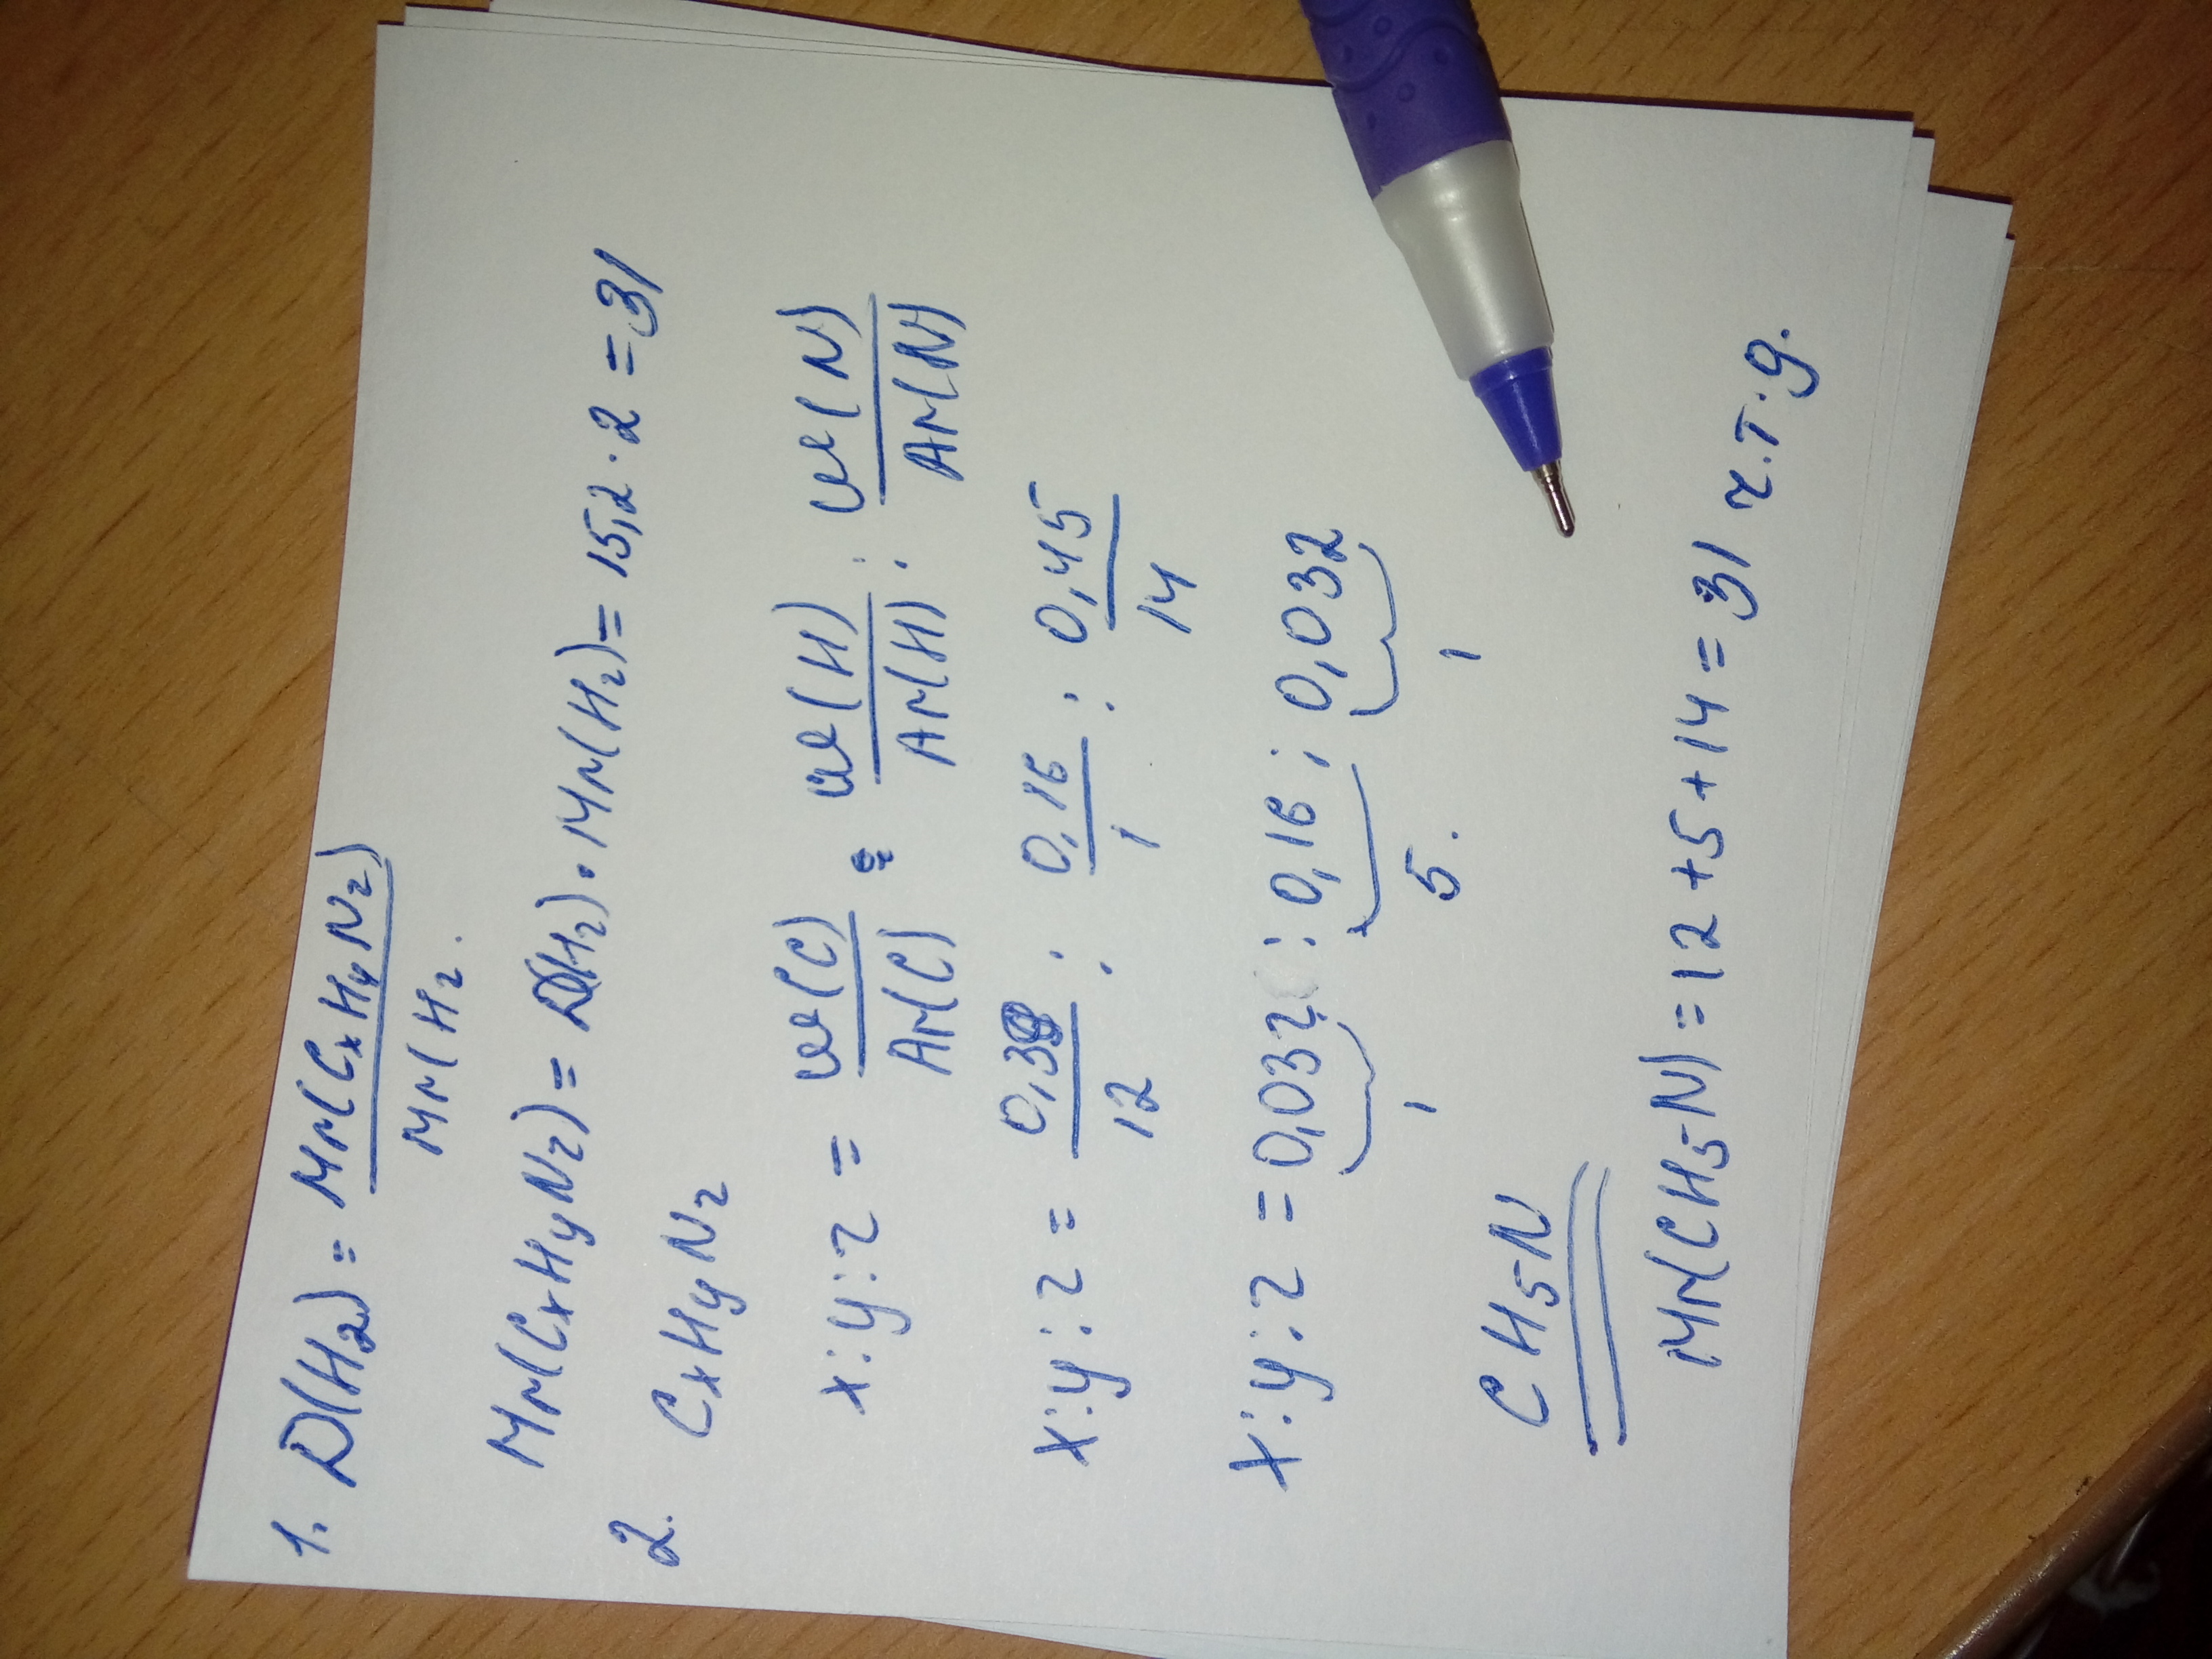 1. D(H₂) = Mr(CxHyNz)
Mr(H₂.
Mr(CxHyNz) = D(H₂)·Mr(H₂) = 15,2·2 = 31
2. CxHyNz
x:y:z = ω(C) : ω(H) : ω(N)
Ar(C) Ar(H) Ar(N)
x:y:z = 0,38 : 0,16 : 0,45
12 1 14
x:y:z = 0,032 : 0,16 : 0,032
1 5. 1
CH₅N
Mr(CH₅N) = 12+5+14 = 31 ч.т.д.